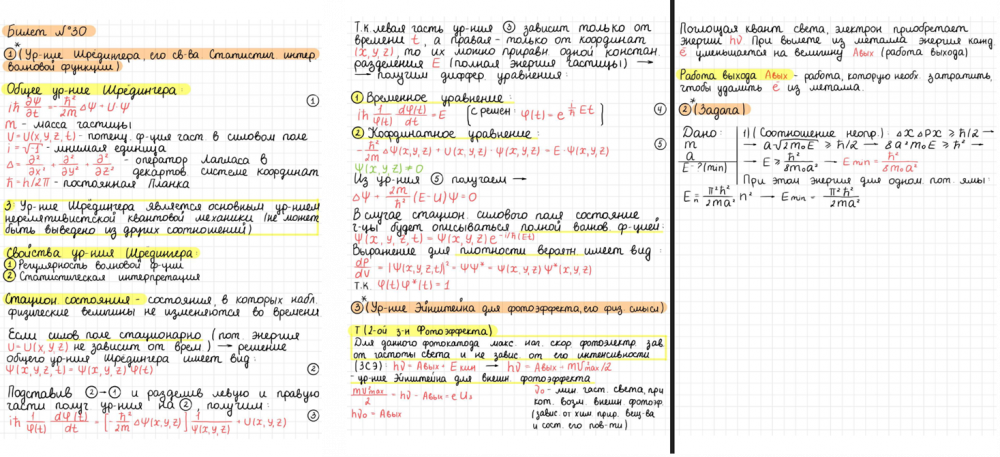 Билет №30
① * (Ур-ние Шрёдингера, его св-ва Статистич интер
волновой функции)
Общее ур-ние Шрёдингера:
iħ ∂Ψ/∂t = -ħ²/2m ΔΨ + U·Ψ ①
m - масса частицы
U = U(x, y, z, t) - потенц. ф-ция част. в силовом поле
i = √-1 - мнимая единица
Δ = ∂²/∂x² + ∂²/∂y² + ∂²/∂z² - оператор Лапласа в
декартов системе координат
ħ = h/2π - постоянная Планка
З Ур-ние Шрёдингера является основным ур-нием
нерелятивистской квантовой механики (не может
быть выведено из других соотношений)
Свойства ур-ния Шрёдингера:
① Регулярность волновой ф-ции
② Статистическая интерпретация
Стацион. состояния - состояния, в которых набл.
физические величины не изменяются во времени
Если силов поле стационарно (пот энергия
U = U(x, y, z) не зависит от врем.) → решение
общего ур-ния Шрёдингера имеет вид:
Ψ(x, y, z, t) = Ψ(x, y, z) φ(t) ②
Подставив ② → ① и разделив левую и правую
части получ ур-ния на ②, получим:
iħ 1/φ(t) dφ(t)/dt = [-ħ²/2m ΔΨ(x, y, z)] 1/Ψ(x, y, z) + U(x, y, z) ③
Т.к. левая часть ур-ния ③ зависит только от
времени t, а правая - только от координат
(x, y, z), то их можно приравн одной констан.
разделения E (полная энергия частицы) →
→ получим диффер. уравнения:
① Временное уравнение:
iħ 1/φ(t) dφ(t)/dt = E [с решен: φ(t) = e^(i/ħ Et)] ④
② Координатное уравнение:
-ħ²/2m ΔΨ(x, y, z) + U(x, y, z) · Ψ(x, y, z) = E · Ψ(x, y, z) ⑤
Ψ(x, y, z) ≠ 0
Из ур-ния ⑤ получаем →
ΔΨ + 2m/ħ² (E - U) Ψ = 0
В случае стацион. силового поля состояние
ч-цы будет описываться полной волнов ф-цией:
Ψ(x, y, z, t) = Ψ(x, y, z) e^(-i/ħ(Et))
Выражение для плотности вероятн имеет вид:
dP/dV = |Ψ(x, y, z, t)|² = ΨΨ* = Ψ(x, y, z) Ψ*(x, y, z)
т.к. φ(t) φ*(t) = 1
③ * (Ур-ние Эйнштейна для фотоэффекта, его физ смысл)
Т (2-ой з-н Фотоэффекта)
Для данного фотокатода макс нач. скор фотоэлектр зав
от частоты света и не завис от его интенсивности
(ЗСЭ): hν = Aвых + Eкин → hν = Aвых + mV²max/2
- ур-ние Эйнштейна для внешн. фотоэффекта
mV²max/2 = hν - Aвых = eU₃
hν₀ = Aвых
ν₀ - мин част. света, при
кот. возм. внешн. фотоэф
(завис. от хим прир. вещ-ва
и сост. его пов-ти)
Поглощая квант света, электрон приобретает
энергии hν При вылете из металла энергия кажд
ē уменьшается на величину Aвых (работа выхода)
Работа выхода Aвых - работа, которую необх. затратить,
чтобы удалить ē из металла.
② * (Задача)
Дано:
m
a
E - ? (min)
1) (Соотношение неопр.): Δx Δpx ≥ ħ/2 →
→ a√2m₀E ≥ ħ/2 → 8a²m₀E ≥ ħ² →
→ E ≥ ħ²/8m₀a² → Emin = ħ²/8m₀a²
При этом энергия для одном. пот. ямы:
En = π²ħ²/2ma² n² → Emin = π²ħ²/2ma²